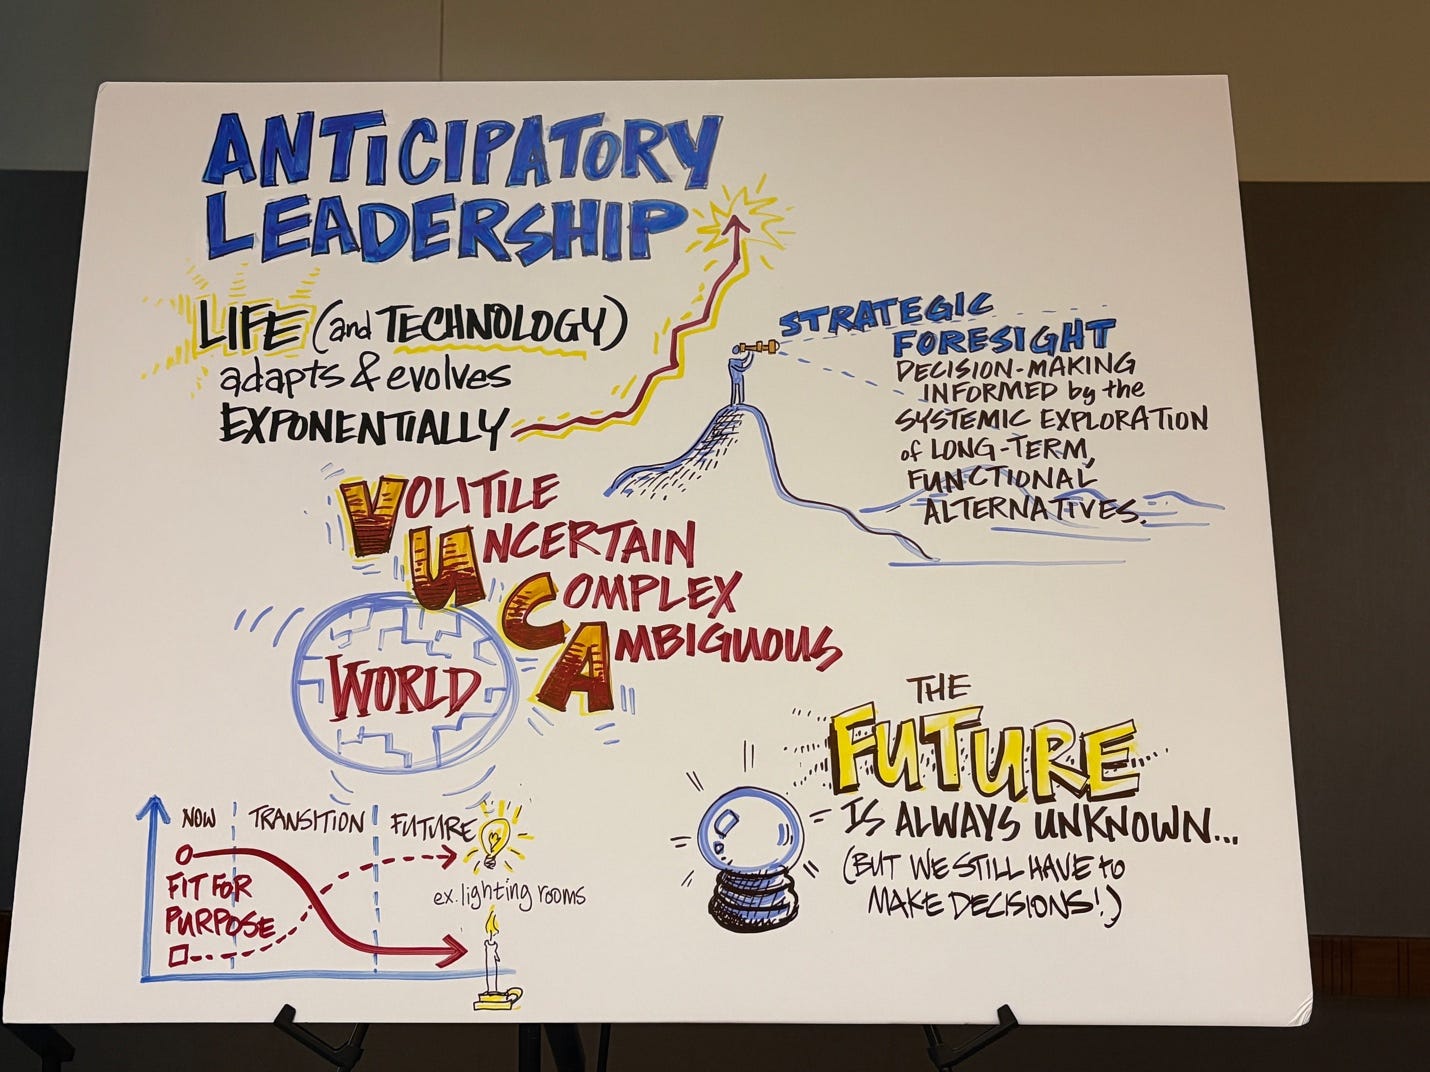 ANTICIPATORY
LEADERSHIP
LIFE (and TECHNOLOGY)
adapts & evolves
EXPONENTIALLY
STRATEGIC
FORESIGHT
DECISION-MAKING
INFORMED by the
SYSTEMIC EXPLORATION
of LONG-TERM,
FUNCTIONAL
ALTERNATIVES.
VOLITILE
UNCERTAIN
COMPLEX
AMBIGUOUS
WORLD
THE
FUTURE
IS ALWAYS UNKNOWN...
(BUT WE STILL HAVE to
MAKE DECISIONS!)
NOW TRANSITION FUTURE
FIT FOR
PURPOSE
ex. lighting rooms